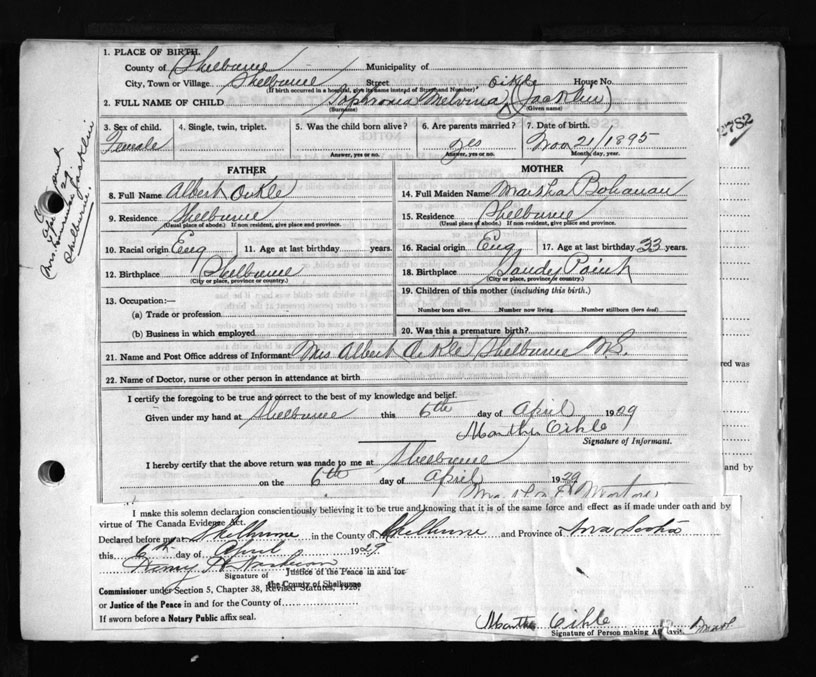 1. PLACE OF BIRTH.
County of Shelburne Municipality of
City, Town or Village Shelburne Street House No.
(If birth occurred in a hospital, give its name instead of Street and Number) Oikle
2. FULL NAME OF CHILD Sophronia Melvina (Jacklin)
(Surname) (Given name)
3. Sex of child. 4. Single, twin, triplet. 5. Was the child born alive? 6. Are parents married? 7. Date of birth.
Female yes Nov 21/1895
Answer, yes or no. Answer, yes or no. Month, day, year.
2782
FATHER MOTHER
8. Full Name Albert Oikle 14. Full Maiden Name Martha Bohanan
9. Residence Shelburne 15. Residence Shelburne
(Usual place of abode.) If non resident, give place and province. (Usual place of abode.) If non resident, give place and province.
10. Racial origin Eng 11. Age at last birthday years. 16. Racial origin Eng 17. Age at last birthday 33 years.
12. Birthplace Shelburne 18. Birthplace Sandy Point
(City or place, province or country.) (City or place, province or country.)
13. Occupation:— 19. Children of this mother (including this birth.)
(a) Trade or profession Number born alive Number now living Number stillborn (born dead)
(b) Business in which employed 20. Was this a premature birth?
21. Name and Post Office address of Informant Mrs Albert Oikle Shelburne N.S.
22. Name of Doctor, nurse or other person in attendance at birth
red was
I certify the foregoing to be true and correct to the best of my knowledge and belief.
Given under my hand at Shelburne this 6th day of April 1929
Martha Oikle
Signature of Informant.
I hereby certify that the above return was made to me at Shelburne
and by
on the 6th day of April 1929
I make this solemn declaration conscientiously believing it to be true and knowing that it is of the same force and effect as if made under oath and by
virtue of The Canada Evidence Act.
Declared before me at Shelburne in the County of Shelburne and Province of Nova Scotia
this 6th day of April 1929
Signature of Justice of the Peace in and for
the County of Shelburne
Commissioner under Section 5, Chapter 38, Revised Statutes, 1923,
or Justice of the Peace in and for the County of
If sworn before a Notary Public affix seal.
Martha Oikle
Signature of Person making Affidavit.